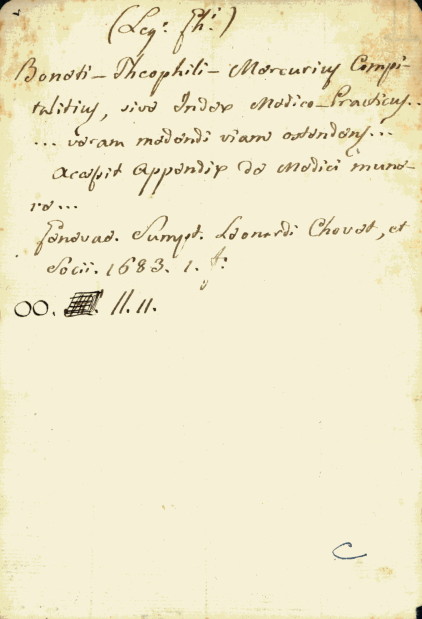 (Leg.º Th.i)
Boneti - Theophili - Mercurius Compi-
talitius, sive Index Medico-Practicus..
... veram medendi viam ostendens...
Accessit Appendix de Medici mune-
re...
Genevae. Sumpt. Leonardi Chovet, et
Socii. 1683. 1. f.
OO. 11.11.
C